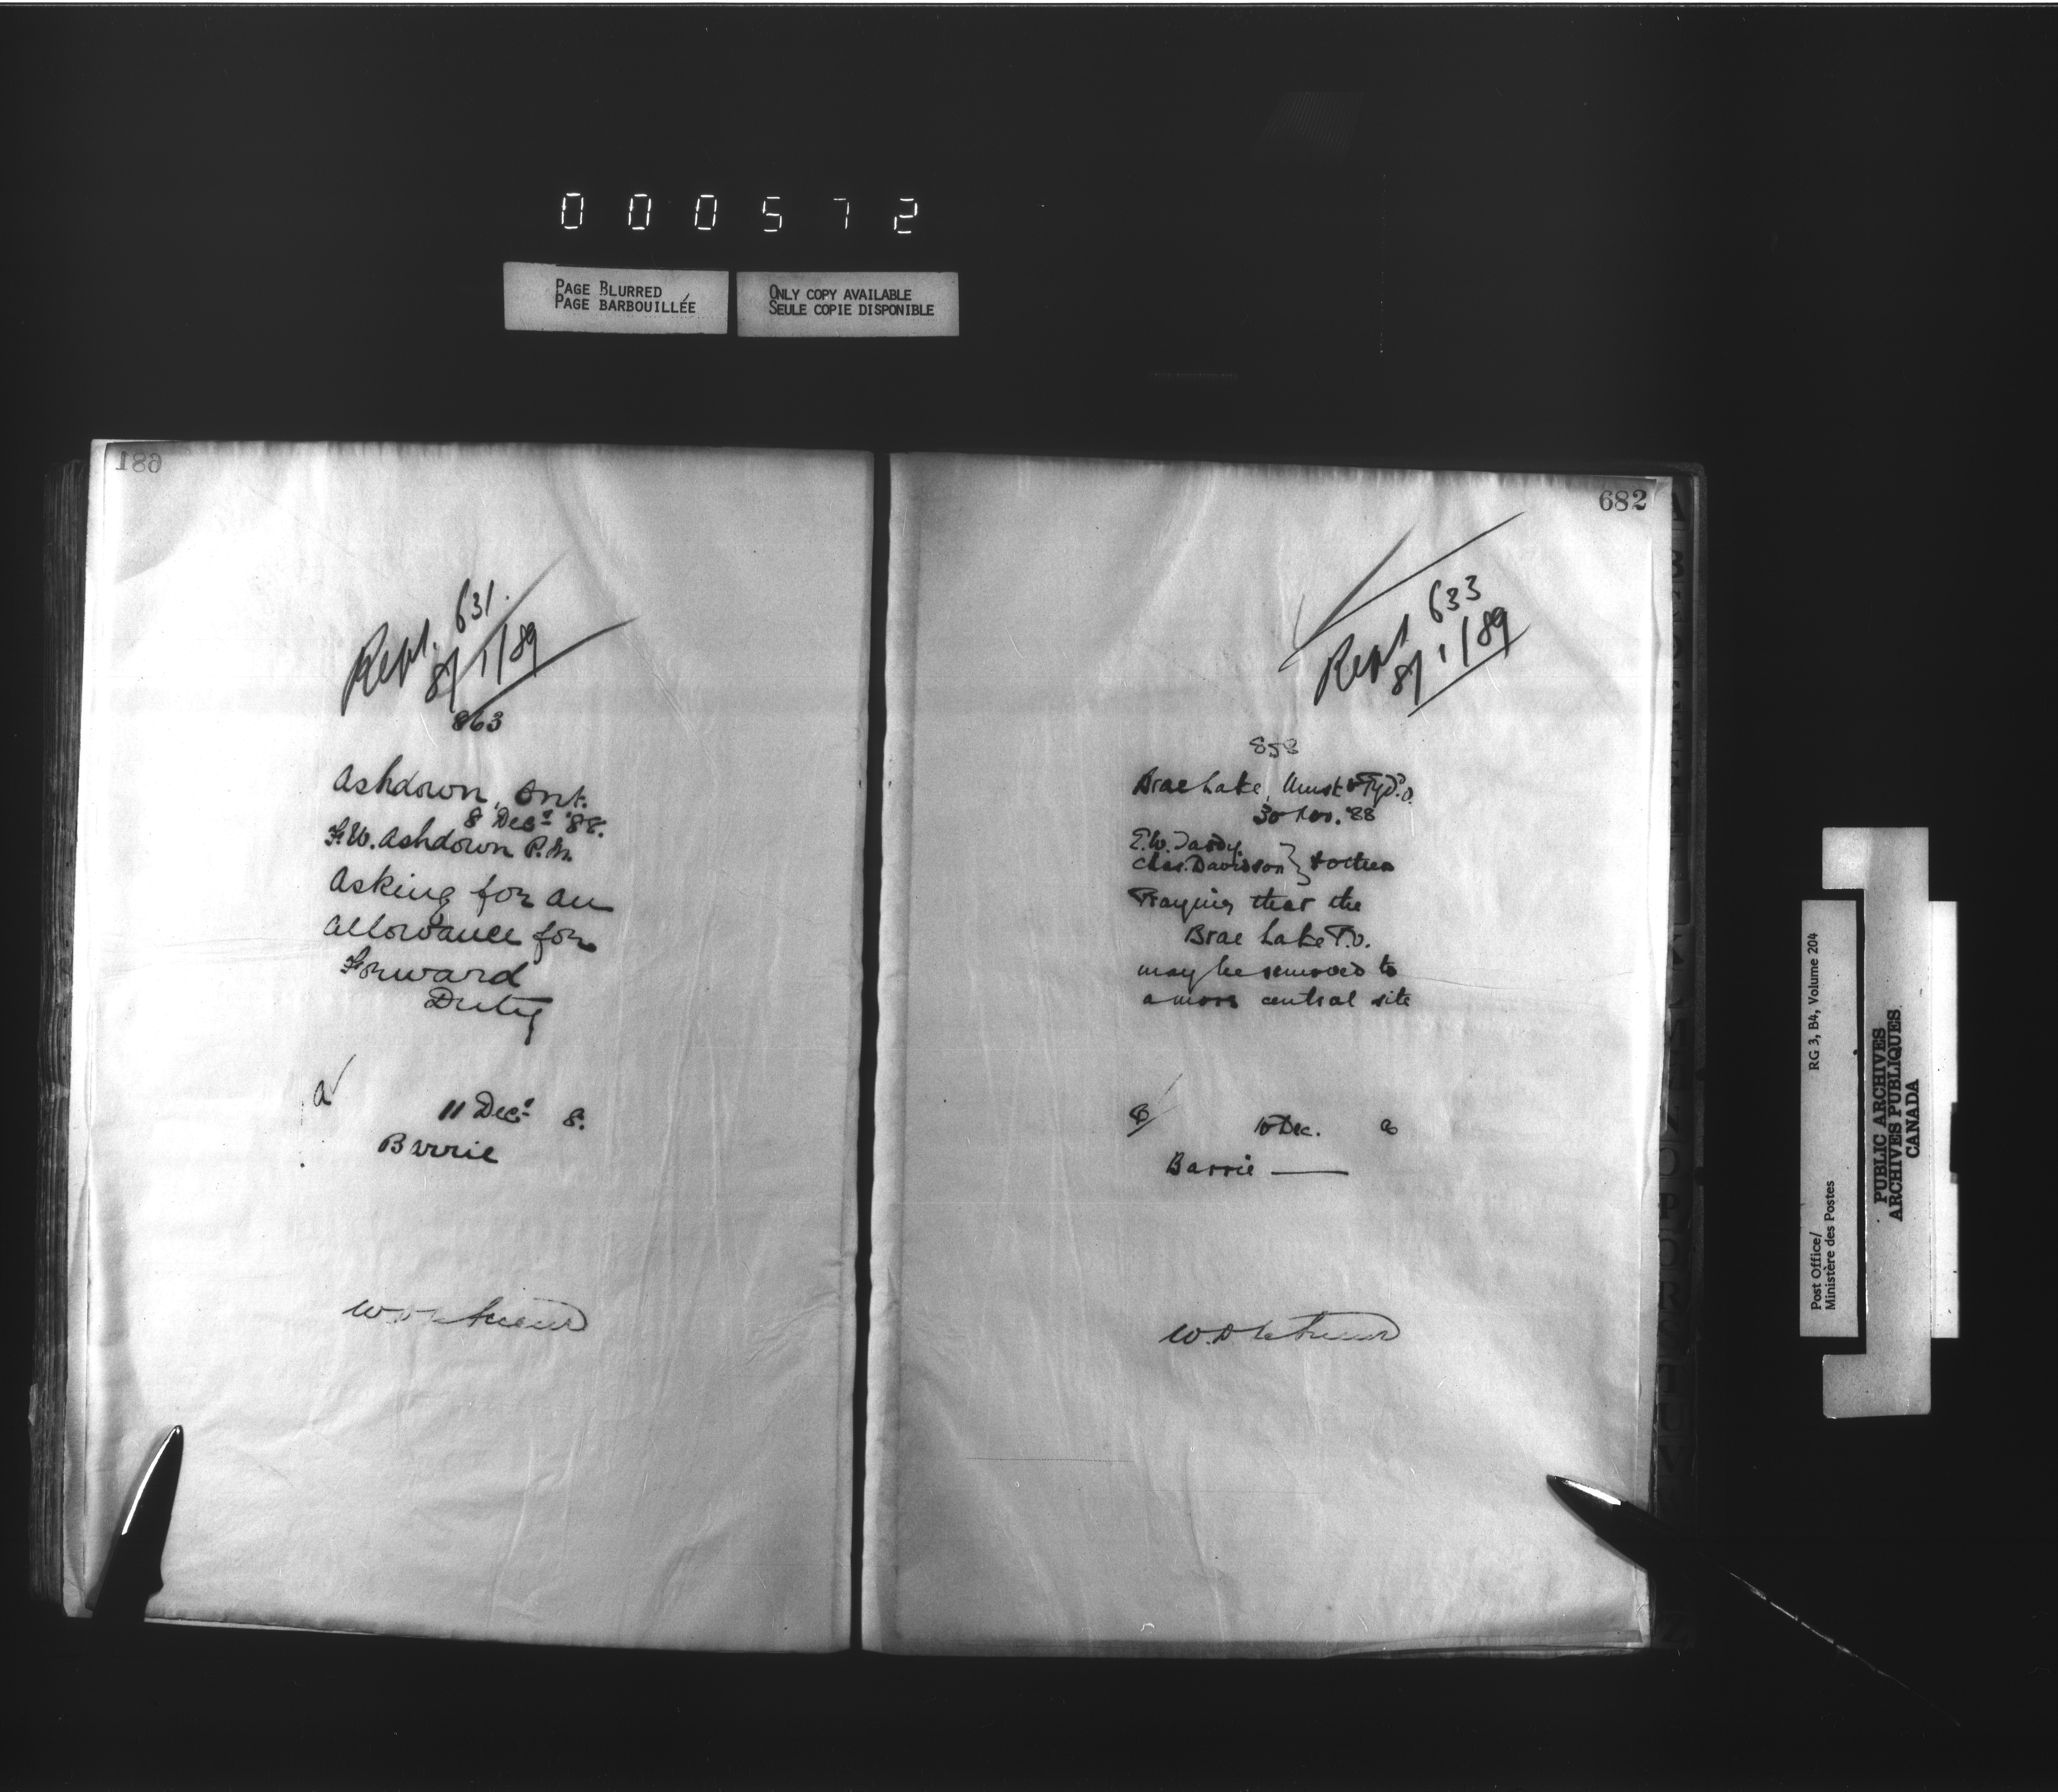 000572
PAGE BLURRED
PAGE BARBOUILLÉE
ONLY COPY AVAILABLE
SEULE COPIE DISPONIBLE
681
Rept. 631.
8/1/89
863
Ashdown, Ont.
8 Dec. '88.
F.W. Ashdown P.M.
Asking for an
allowance for
Forward
Duty
a
11 Dec. 8.
Barrie
682
Rept 633
8/1/89
858
Brae Lake,
30 Nov. '88
E.W.
Chas. Davidson } & others
Praying that the
Brae Lake P.O.
may be removed to
a more central site
10 Dec. 8
Barrie
Post Office/
Ministère des Postes
RG 3, B4, Volume 204
PUBLIC ARCHIVES
ARCHIVES PUBLIQUES
CANADA